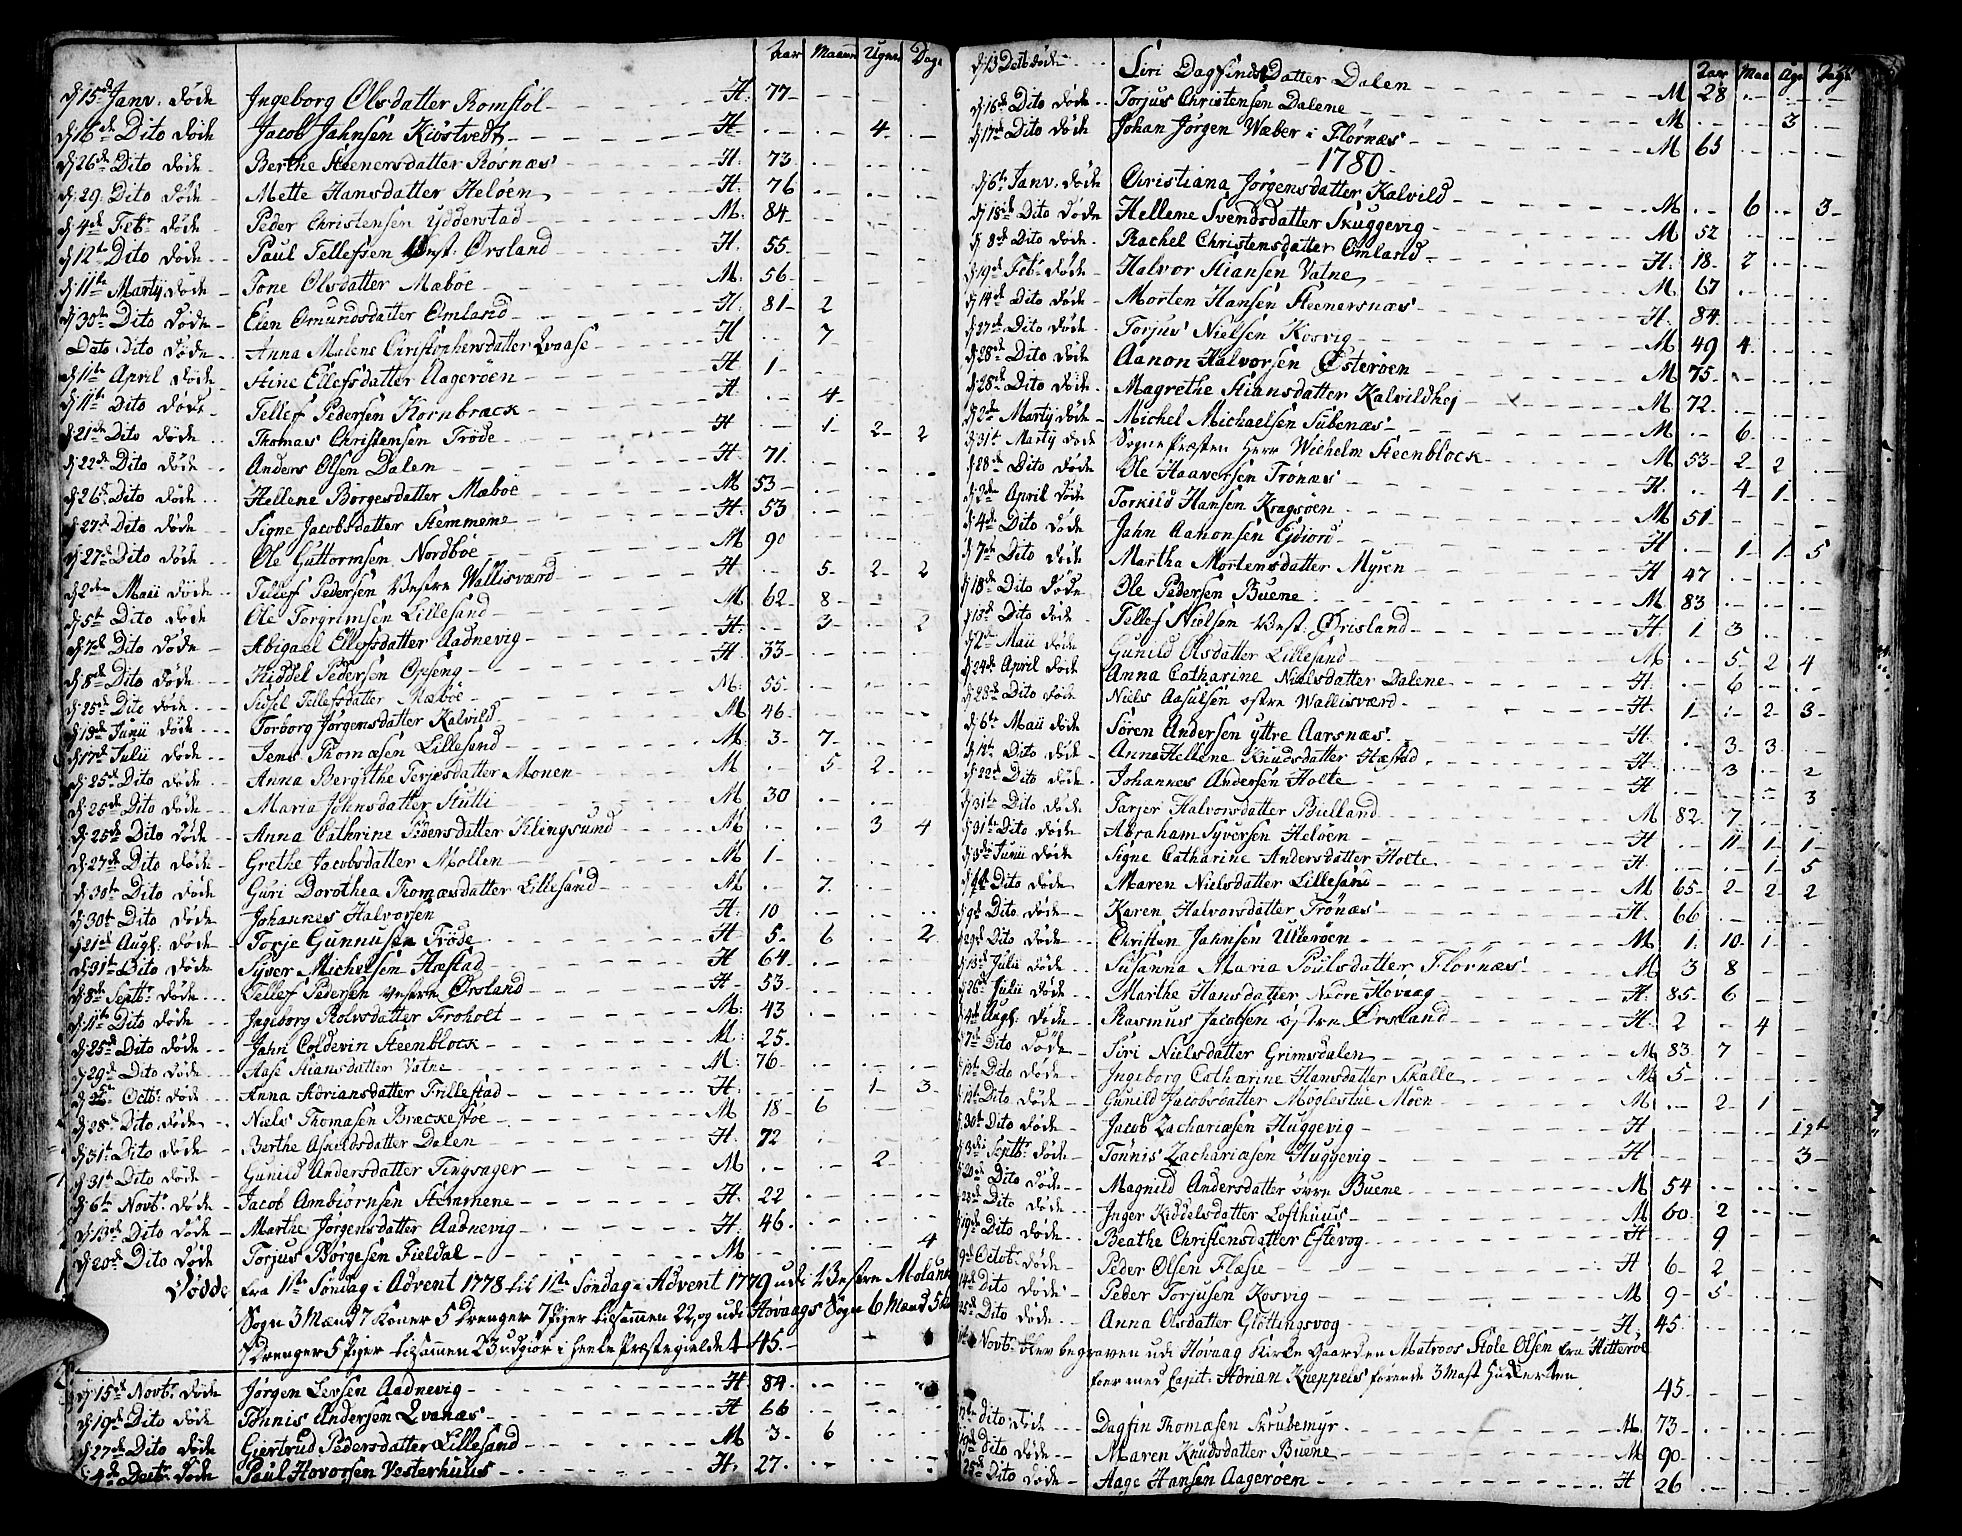 Aar Maan Ugne Dage
d: 15de Janv. døde Ingeborg Olsdatter Romstøl - H: 77 -
d: 16de Dito døde Jacob Jahnsen Kiøstvedt - H - 4 -
d: 26de Dito døde Berthe Steenersdatter Rosnæs - H: 73
d: 29 Dito døde Mette Hansdatter Heløen - H: 76
d: 4de Febr. døde Peder Christensen Ydderstad - M: 84
d: 12te Dito døde Paul Tellefsen Vest: Ørsland - H: 55
d: 11te Martij døde Tone Olsdatter Mæbøe - M: 56
d: 30te Dito døde Eien Omundsdatter Omland - H: 81 - 2
Dato dito døde Anna Malene Christophersdatter Qvaase - H - 7
d: 11te April døde Stine Ellefsdatter Aagerøen - H 1
d: 11te Dito døde Tellef Pedersen Kornbræck - H - 4
d: 21de Dito døde Thomas Christensen Trøde - H - 1 - 2 - 2
d: 22de Dito døde Anders Olsen Dalen - H: 71
d: 26de Dito døde Hellene Børgesdatter Mæbøe - M 53
d: 27de Dito døde Signe Jacobsdatter Stemmene - H: 53
d: 27de Dito døde Ole Guttormsen Nordbøe - M 90
d: 2den Maii døde Tellef Pedersen Vestre Wallisværd - H - 5 - 2 - 2
d: 5te Dito døde Ole Torgrimsen Lillesand - M 62 - 8
d: 7de Dito døde Abigael Ellefsdatter Aadnevig - H: - 3 - 2
d: 8de Dito døde Kiddel Pedersen Opseng - H 33
d: 25de Dito døde Sidsel Tellefsdatter Mæbøe - M: 55
d: 13de Junii døde Torborg Jørgensdatter Kalvild - M 46
d: 17de Julii døde Jens Thomæsen Lillesand - M: 3 - 7
d: 25de Dito døde Anna Bergithe Terjesdatter Monen - M - 5 - 2
d: 25de Dito døde Maria Johnsdatter Stutli - M 30
d: 25de Dito døde Anna Cathrine Pedersdatter Klingsund - M - 3 4
d: 27de Dito døde Grethe Jacobsdatter Mollen - M 1
d: 30te Dito døde Guri Dorothea Thomæsdatter Lillesand - M - 7
d: 30te Dito døde Johannes Halvorsen - H: 10
d: 21de Augl. døde Torje Gunnusen Trøde - H 5 - 6 - 2
d: 31te Dito døde Syver Michelsen Hæstad - H 64
d: 8de Septbr. døde Tellef Pedersen Vestre Ørsland - H - 53
d: 11te Dito døde Ingeborg Rolvsdatter Froholt - M: 43
d: 25de Dito døde Jahn Coldevin Steenblock - M: 25
d: 29de Dito døde Aase Stiansdatter Vatne - M: 76
d: 25de Octbr. døde Anna Adriansdatter Trillestad - H - 1 - 3
d: 28de Dito døde Niels Thomasen Bræckestøe - M 18 - 6
d: 31te Dito døde Berthe Asheldsdatter Dalen - H: 72
d: 31te Dito døde Gunild Andersdatter Tingsager - M - 2
d: 6te Novbr. døde Jacob Ambiørnsen Stemmene - H: 22
d: 13de Dito døde Marthe Jørgensdatter Aadnevig - H: 46
d: 20de Dito døde Torjus Børgesen Fieldal - M - 4
Dødde fra 1ste Søndag i Advent 1778 til 1ste Søndag i Advent 1779 udi Vestre Molann
Sogn 3 Mænd 7 Koner 5 Drenger 7 Piger tilsammen 22, og udi Høvaags Sogn 6 Mænd 5
7 Drenger 5 Piger tilsammen 23 udgiør i heele Præstegieldet 45.
d: 15de Novbr. døde Jørgen Levsen Aadnevig - H: 84
d: 19de Dito døde Tønnis Andersen Qvanæs - H 66
d: 27de Dito døde Giertrud Pedersdatter Lillesand - M 3 - 6
d: 4de Decbr. døde Paul Hovorsen Vesterhuus - H. 27
Aar Maa Uge Dage
d: 13 Decb. døde Siri Dagfinds Datter Dalen - M 28
d: 16de Dito døde Torjus Christensen Dalene - M - 3
d: 17de Dito døde Johan Jørgen Wæber i Flørnæs - M 65
1780
d: 6te Janv. døde Christiana Jørgensdatter Kalvild - M - 6 - 3
d: 18de Dito døde Hellene Svendsdatter Skuggevig - M 52
d: 8de Dito døde Rachel Christensdatter Omland - H: 18 - 2
d: 19de Febr. døde Halvor Stiansen Vatne - M 67
d: 14de Dito døde Morten Hansen Steenersnæs - H: 84
d: 27de Dito døde Torjus Nielsen Kosvig - M 49 4
d: 28de Dito døde Aanon Halvorsen Østerøen - M 75
d: 28de Dito døde Magrethe Stiansdatter Kalvildhej - M 72
d: 2de Martij døde Michel Michaelsen Tubenæs - M - 6
d: 31te Martij døde Sogne Præsten Herr Wilhelm Steenblock - M 53 - 2 - 2
d: 28de Dito døde Ole Haaversen Trønæs - H. - 4 - 1
d: 2de April døde Torkild Hansen Kragsøen - M 51
d: 4de Dito døde Jahn Aanonsen Ejdiord - H - 1 - 1 - 5
d: 7de Dito døde Martha Mortensdatter Myren - H 47
d: 18de Dito døde Ole Pedersen Buene - M 83
d: 18de Dito døde Tellef Nielsen Vest: Ørisland - H 1 3
d: 2de Maii døde Gunild Olsdatter Lillesand - M - 5 - 2 4
d: 24de April døde Anna Catharine Nielsdatter Dalene - H. - 6
d: 28de Dito døde Niels Aasulsen østre Wallisværd - H. 1 - 2 - 3
d: 6te Maii døde Søren Andersen yttre Aarsnæs - H: - 3 - 3
d: 11te Dito døde Anne Hellene Knudsdatter Hæstad - H. - 3 - 2
d: 22de Dito døde Johannes Andersen Holte - H - 3
d: 31te Dito døde Tarjer Halvorsdatter Bielland - M 82 - 7
d: 31te Dito døde Abraham Syversen Heløen - H - 11 - 1 - 1
Junii døde Signe Catharine Andersdatter Holte - H. - 1 5
Dito døde Maren Nielsdatter Lillesand - M 65 - 2 - 2 2
d: 9de Dito døde Karen Halvorsdatter Trønæs - H. 66
d: 29de Dito døde Christen Jahnsen Ullerøen - M 1 10 - 1
d: 13de Julii døde Susanna Maria Poulsdatter Flørnæs - M 3 8
d: 26de Julii døde Marthe Hansdatter Nære Hovaag - H: 85 - 6
Augl. døde Rasmus Jacobsen østre Ørsland - H: 2 - 4
d: 7de Dito døde Siri Nielsdatter Grimsdalen - M 83 7
d: 11te Dito døde Ingeborg Catharine Hansdatter Skalle - M 5
d: 11te Dito døde Gunild Jacobsdatter Møglestue Moen - M - 2 - 1
d: 30te Dito døde Jacob Zachariæsen Huggevig - H
d: 3die Septbr. døde Tønnis Zachariæsen Huggevig - H - 3
d: 20de Dito døde Magnild Andersdatter øvre Buene - M 54
d: 23de Dito døde Inger Kiddelsdatter Lofthuus - M 60 - 2
d: 19de Dito døde Beathe Christensdatter Estevog - H - 9
d: 9de Octob. døde Peder Olsen Flasie - H 6 - 2
d: 14de Dito døde Peder Torjusen Kosvig - M 9 - 5
d: 25de Dito døde Anna Olsdatter Gløttingsvog - H. 45
Novbr. blev begraven udi Høvaag Kirke Gaarden Matroos Stole Olsen fra Hitterøe
foer med Capit: Adrian Kneppels førende 3 Mast 45
dito døde Dagfin Thomæsen Skrubemyr - M. 73
d: 19de dito døde Maren Knudsdatter Buene - M 90
d: 25de Dito døde Aage Hansen Aagerøen - H 26